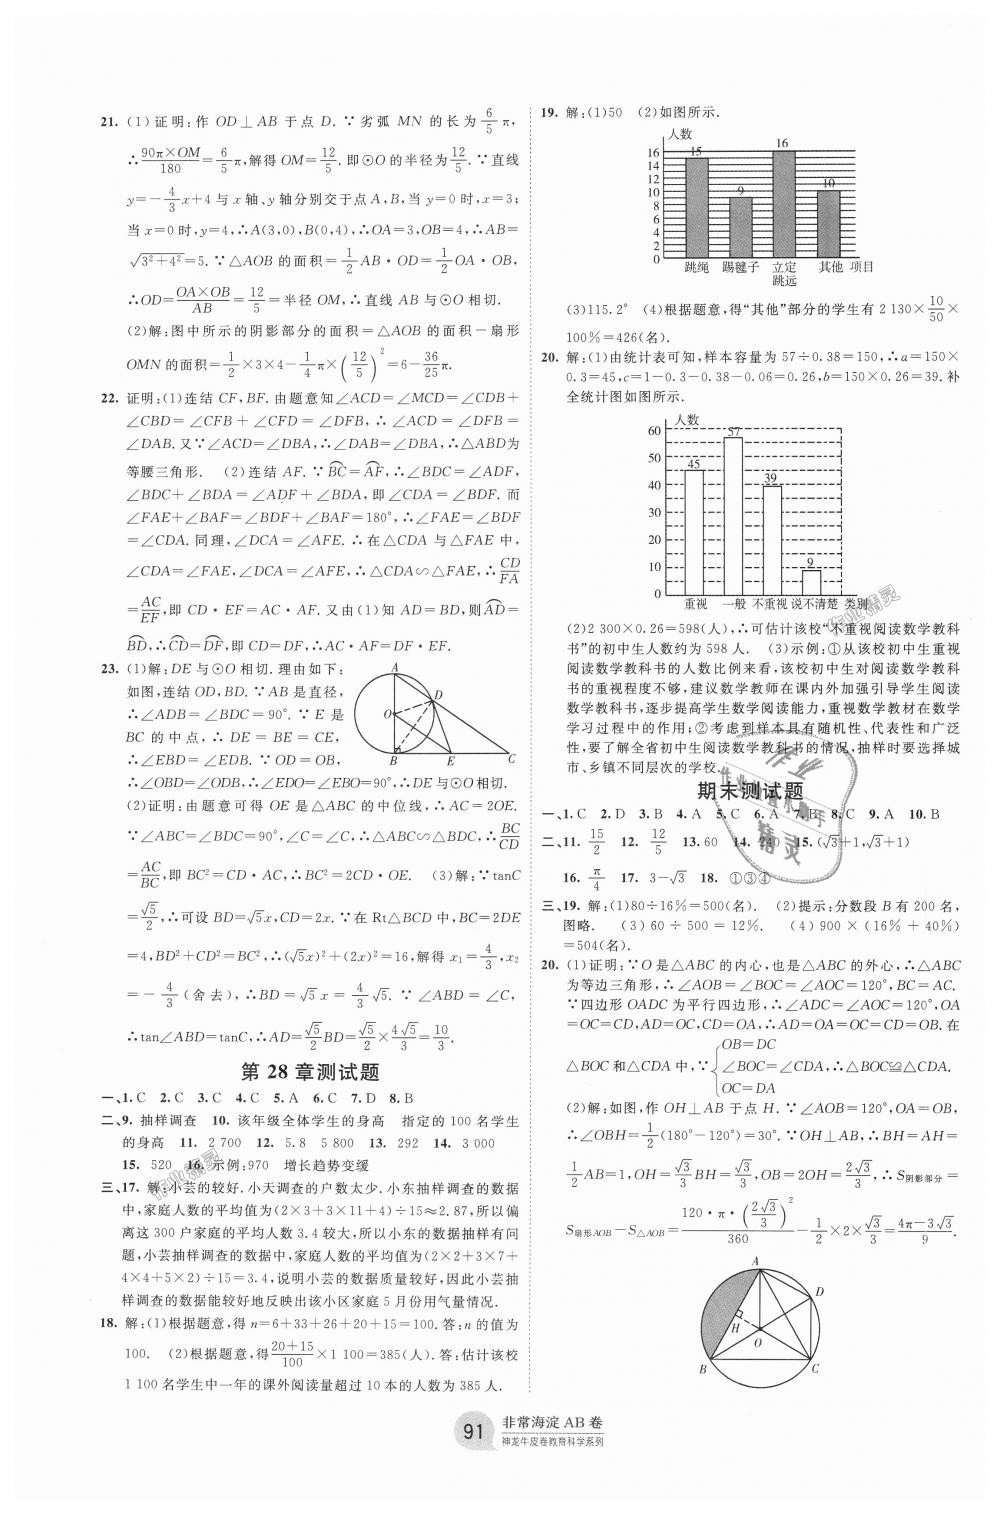 21. (1)证明:作 OD⊥AB 于点 D.∵劣弧 MN 的长为 6/5 π,
∴ 90π×OM/180 = 6/5 π,解得 OM= 12/5 .即⊙O 的半径为 12/5 .∵直线
y=− 4/3 x+4 与 x 轴、y 轴分别交于点 A,B,当 y=0 时,x=3;
当 x=0 时,y=4,∴A(3,0),B(0,4),∴OA=3,OB=4,∴AB=
√(3²+4²)=5.∵△AOB 的面积= 1/2 AB·OD= 1/2 OA·OB,
∴OD= OA×OB/AB = 12/5 =半径 OM,∴直线 AB 与⊙O 相切.
(2)解:图中所示的阴影部分的面积=△AOB 的面积−扇形
OMN 的面积= 1/2 ×3×4− 1/4 π×(12/5)²=6− 36/25 π.
22. 证明:(1)连结 CF,BF.由题意知∠ACD=∠MCD=∠CDB+
∠CBD=∠CFB+∠CFD=∠DFB,∴∠ACD=∠DFB=
∠DAB.又∵∠ACD=∠DBA,∴∠DAB=∠DBA,∴△ABD为
等腰三角形. (2)连结 AF.∵⌒BC=⌒AF,∴∠BDC=∠ADF,
∠BDC+∠BDA=∠ADF+∠BDA,即∠CDA=∠BDF.而
∠FAE+∠BAF=∠BDF+∠BAF=180°,∴∠FAE=∠BDF
=∠CDA.同理,∠DCA=∠AFE.∴在△CDA 与△FAE 中,
∠CDA=∠FAE,∠DCA=∠AFE,∴△CDA∽△FAE,∴ CD/FA
= AC/EF ,即 CD·EF=AC·FA.又由(1)知 AD=BD,则⌒AD=
⌒BD,∴⌒CD=⌒DF,即 CD=DF,∴AC·AF=DF·EF.
23. (1)解:DE 与⊙O 相切.理由如下:
如图,连结 OD,BD.∵AB 是直径,
∴∠ADB=∠BDC=90°.∵E 是
BC 的中点,∴DE=BE=CE,
∴∠EBD=∠EDB.∵OD=OB,
∴∠OBD=∠ODB,∴∠EDO=∠EBO=90°,∴DE与⊙O相切.
A
D
O
B E C
(2)证明:由题意可得 OE 是△ABC 的中位线,∴AC=2OE.
∵∠ABC=∠BDC=90°,∠C=∠C,∴△ABC∽△BDC,∴ BC/CD
= AC/BC ,即 BC²=CD·AC,∴BC²=2CD·OE. (3)解:∵tanC
= √5/2 ,∴可设 BD=√5x,CD=2x.∵在 Rt△BCD 中,BC=2DE
=4,BD²+CD²=BC²,∴(√5x)²+(2x)²=16,解得 x₁= 4/3 ,x₂
=− 4/3 (舍去),∴BD=√5x= 4/3 √5.∵∠ABD=∠C,
∴tan∠ABD=tanC,∴AD= √5/2 BD= √5/2 × 4√5/3 = 10/3 .
第 28 章测试题
一、1.C 2.C 3.C 4.C 5.A 6.C 7.D 8.B
二、9. 抽样调查 10. 该年级全体学生的身高 指定的 100 名学生
的身高 11. 2 700 12. 5.8 5 800 13. 292 14. 3 000
15. 520 16. 示例:970 增长趋势变缓
三、17. 解:小芸的较好.小天调查的户数太少.小东抽样调查的数据
中,家庭人数的平均值为(2×3+3×11+4)÷15≈2.87,所以偏
离这 300 个家庭的平均人数 3.4 较大,所以小东的数据抽样有问
题,小芸抽样调查的数据中,家庭人数的平均值为(2×2+3×7+
4×4+5×2)÷15=3.4,说明小芸的数据质量较好,因此小芸抽
样调查的数据能较好地反映出该小区家庭 5 月份用气量情况.
18. 解:(1)根据题意,得 n=6+33+26+20+15=100.答:n 的值为
100. (2)根据题意,得 20+15/100 ×1 100=385(人).答:估计该校
1 100 名学生中一年的课外阅读量超过 10 本的人数为 385 人.
19. 解:(1)50 (2)如图所示.
人数
16 14 12 10 8 6 4 2 0
15 9 16 10
跳绳 踢毽子 立定跳远 其他 项目
(3)115.2° (4)根据题意,得“其他”部分的学生有 2 130× 10/50 ×
100%=426(名).
20. 解:(1)由统计表可知,样本容量为 57÷0.38=150,∴a=150×
0.3=45,c=1−0.3−0.38−0.06=0.26,b=150×0.26=39.补
全统计图如图所示.
人数
60 50 50 40 30 20 10 0
45 57 39 9
重视 一般 不重视 说不清楚 类别
(2)2 300×0.26=598(人),∴可估计该校“不重视阅读数学教科
书”的初中生人数约为 598 人. (3)示例:①从该校初中生重视
阅读数学教科书的人数比例来看,该校初中生对阅读数学教科
书的重视程度不够,建议数学教师在课内外加强引导学生阅读
数学教科书,逐步提高学生数学阅读能力,重视数学教材在数学
学习过程中的作用;②考虑到样本具有随机性、代表性和广泛
性,要了解全省初中生阅读数学教科书的情况,抽样时要选择城
市、乡镇不同层次的学校.
期末测试题
一、1.C 2.D 3.B 4.A 5.C 6.A 7.B 8.C 9.A 10.B
二、11. 15/2 12. 12/5 13.60 14. 240 15.(√3+1,√3+1)
16. π/4 17. 3−√3 18. ①③④
三、19. 解:(1)80÷16%=500(名). (2)提示:分数段 B 有 200 名,
图略. (3)60÷500=12%. (4)900×(16%+40%)
=504(名).
20. (1)证明:∵O 是△ABC 的内心,也是△ABC 的外心,∴△ABC
为等边三角形,∴∠AOB=∠BOC=∠AOC=120°,BC=AC.
∵四边形 OADC 为平行四边形,∴∠ADC=∠AOC=120°,OA
=OC=CD,AD=OC,CD=OA,∴AD=OA=OC=CD=OB.在
△BOC和△CDA 中,∵ { OB=DC ∠BOC=∠CDA, OC=DA ∴△BOC≌△CDA.
(2)解:如图,作 OH⊥AB 于点 H.∵∠AOB=120°,OA=OB,
∴∠OBH= 1/2 (180°−120°)=30°.∵OH⊥AB,∴BH=AH=
1/2 AB=1,OH= √3/3 BH= √3/3 ,OB=2OH= 2√3/3 ,∴S阴影部分=
S扇形AOB−S△AOB= 120·π·(2√3/3)²/360 − 1/2 ×2× √3/3 = 4π−3√3/9 .
A
D
H
O
B C
91
非常海淀 AB 卷
神龙牛皮卷教育科学系列
作业精灵
作业精灵
作业
精灵